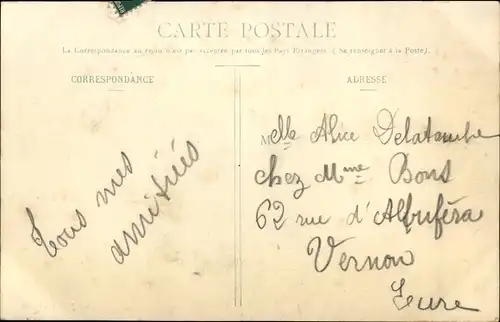 CARTE POSTALE
La Correspondance au recto n'est pas acceptée par tous les Pays Etrangers. ( Se renseigner à la Poste).
CORRESPONDANCE
Tous mes
amitiés
ADRESSE
Melle Alice Delatouche
chez Mme Bons
62 rue d'Albuféra
Vernon
Eure